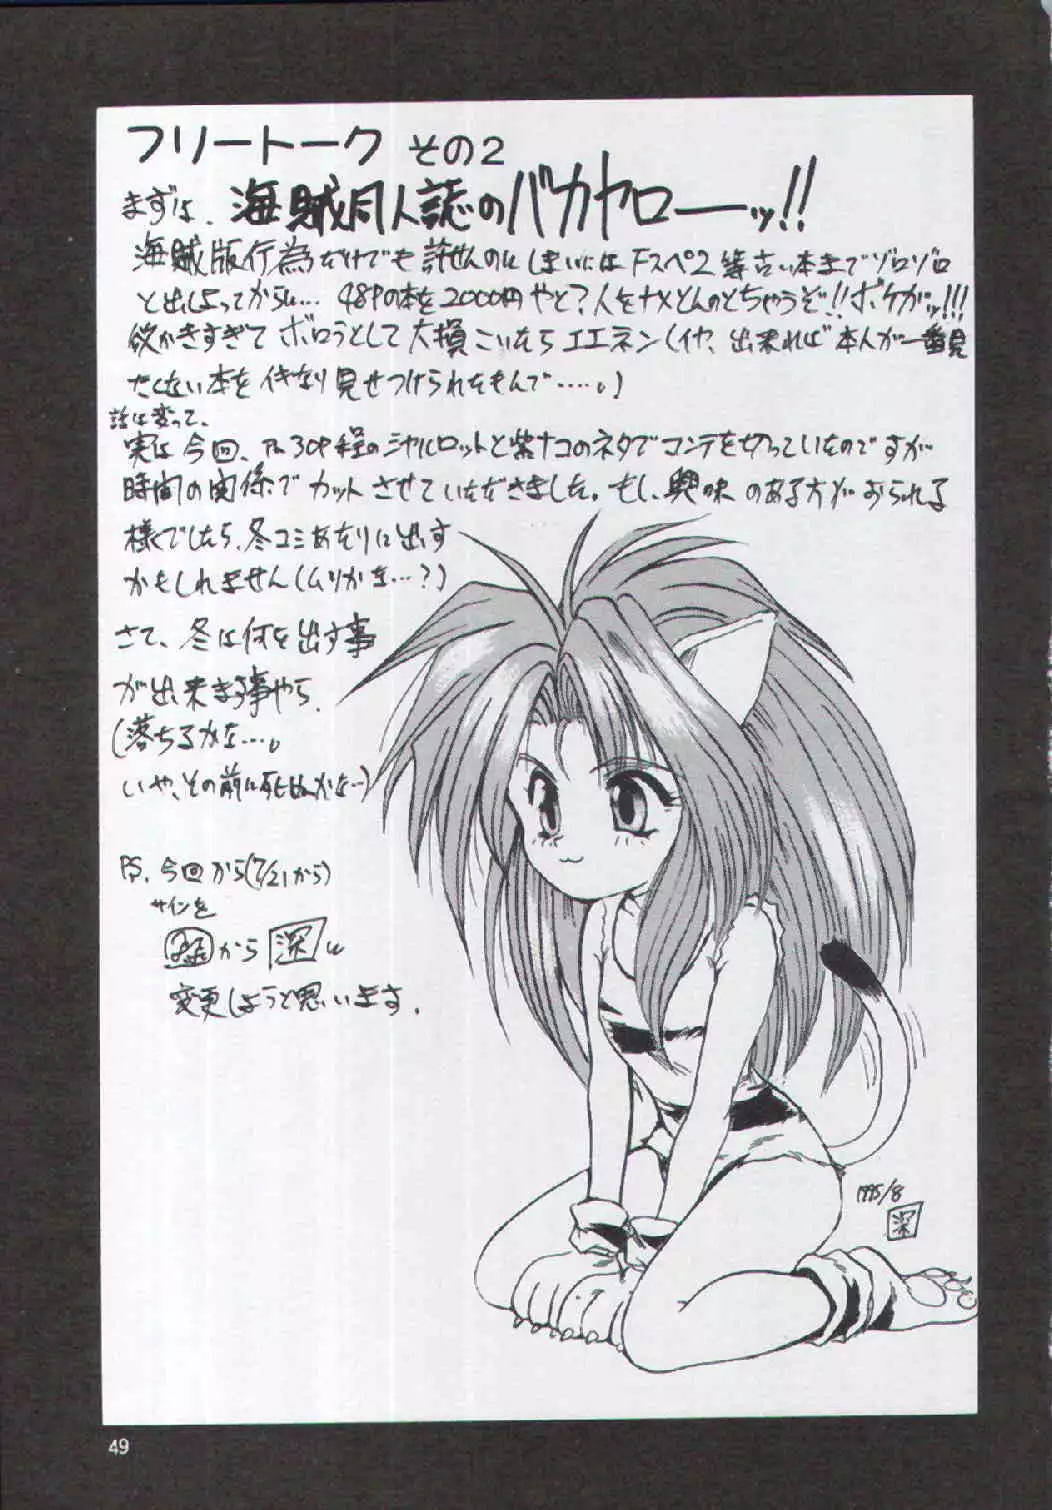 フリートーク その2
まずは、海賊同人誌のバカヤローッ!!
海賊版行為だけでも許せんのにしまいにはFスペ2等古い本までゾロゾロ
と出しよってからに… 48Pの本を2000円やと?人をナメとんのとちゃうぞ!!ボケがッ!!!
欲かきすぎてボロうとして大損こいたらエエネン(イヤ、出来れば本人が一番見
たくない本をイキなり見せつけられたもんで……。)
話は変って、
実は今回、30P程のシャルロットと紫ナコのネタでコンテを切っていたのですが
時間の関係でカットさせていただきました。もし、興味のある方がおられる
様でしたら、冬コミあたりに出す
かもしれません(ムリかな…?)
さて、冬は何を出す事
が出来ます事やら、
(落ちるかな…。
いや、その前に死ぬかな…)
PS. 今回から(7/21から)
サインを
から 深 に
変更しようと思います.
1995/8
深
49